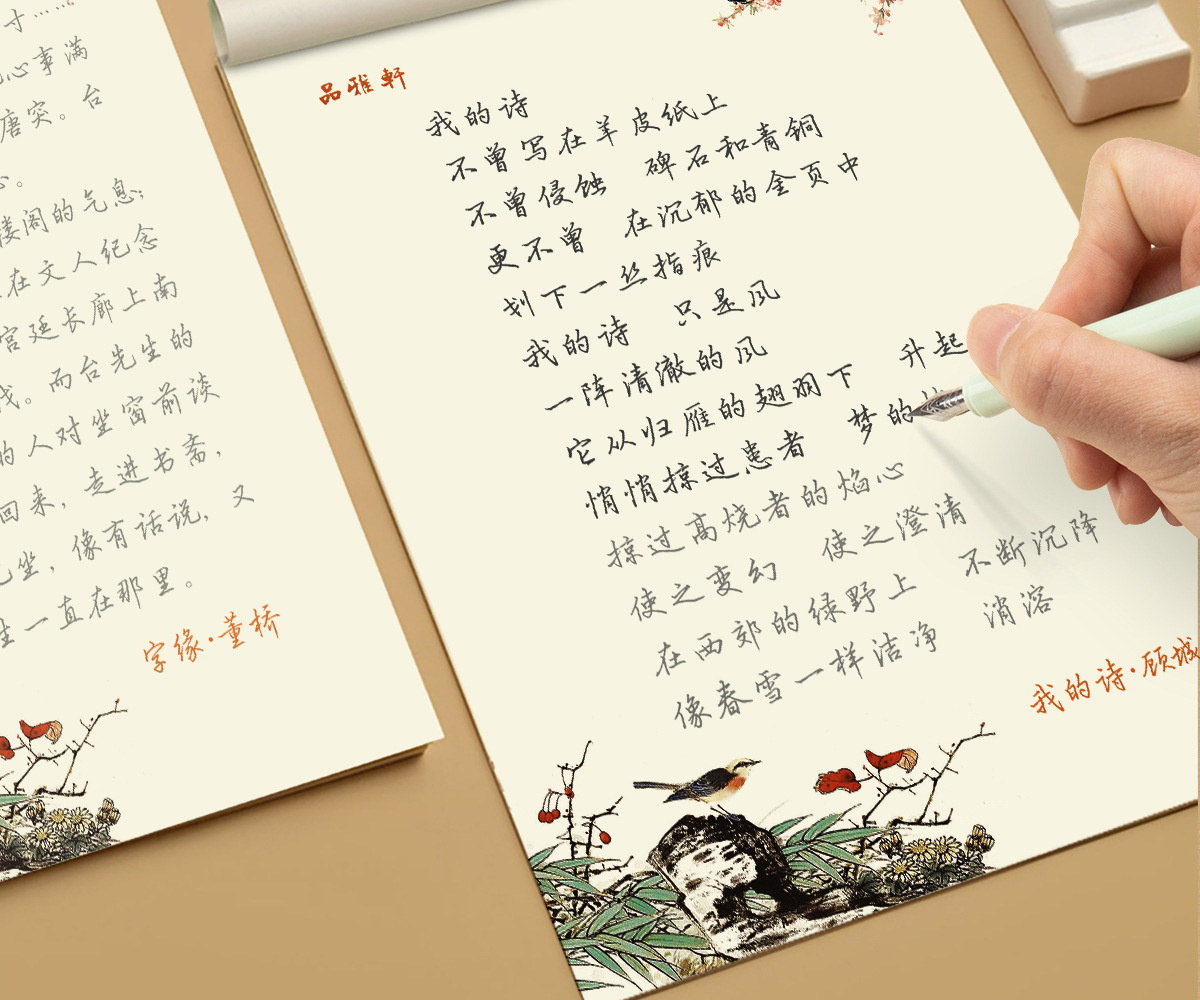 寸……
心事满
唐突。台
心。
楼阁的气息;
在文人纪念
宫廷长廊上南
我。而台先生的
的人对坐窗前谈
回来,走进书斋,
坐,像有话说,又
生一直在那里。
字缘·董桥
品雅軒
我的诗
不曾写在羊皮纸上
不曾侵蚀 碑石和青铜
更不曾 在沉郁的金页中
划下一丝指痕
我的诗 只是风
一阵清澈的风
它从归雁的翅羽下 升起
悄悄掠过患者 梦的
掠过高烧者的焰心
使之变幻 使之澄清
在西郊的绿野上 不断沉降
像春雪一样洁净 消溶
我的诗·顾城